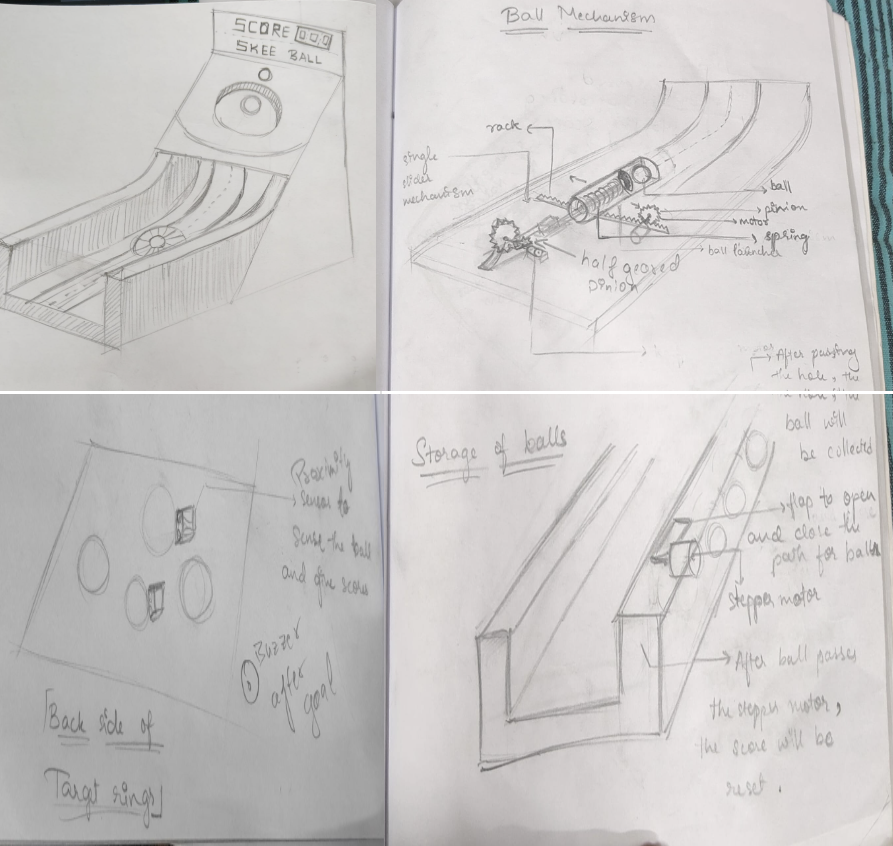 SCORE 000
SKEE BALL
Ball Mechanism
rack
single
slider
mechanism
ball
pinion
motor
spring
ball launcher
half geared
pinion
After passing
the hole, the
ball will
be collected
Proximity
sensor to
sense the ball
and give score
Buzzer
after
goal
Back side of
Target rings
Storage of balls
flap to open
and close the
path for balls
stepper motor
After ball passes
the stepper motor,
the score will be
reset.